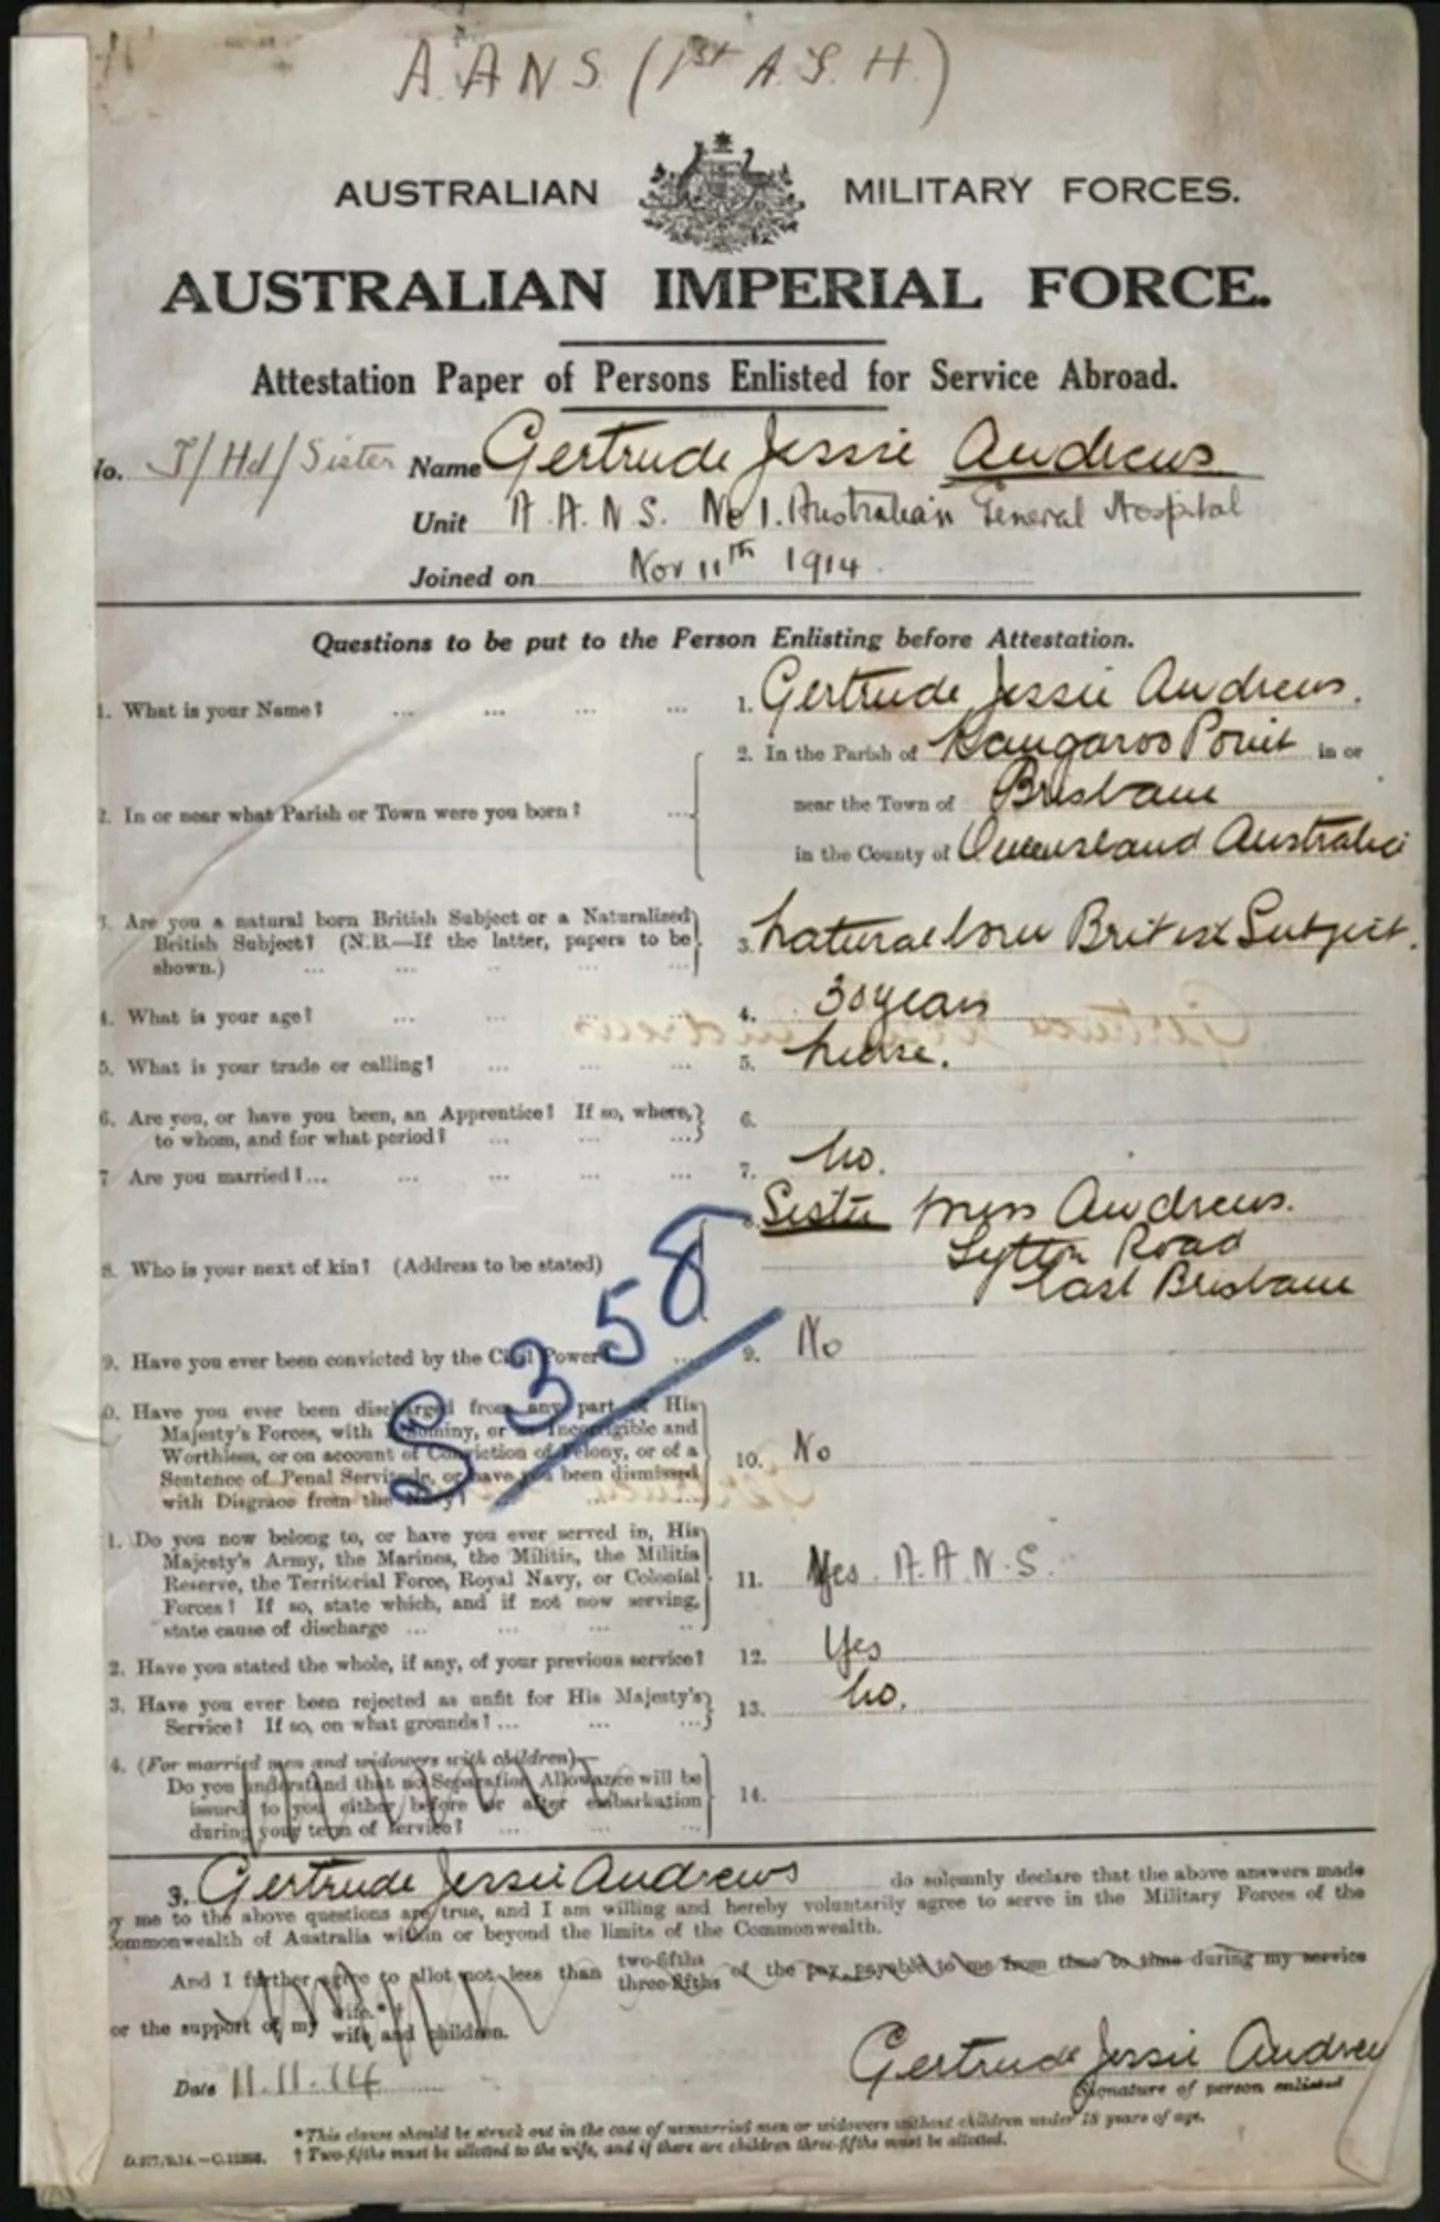 A.A.N.S. (1st A.S.H.)
AUSTRALIAN MILITARY FORCES.
AUSTRALIAN IMPERIAL FORCE.
Attestation Paper of Persons Enlisted for Service Abroad.
No. T/Hd/Sister Name Gertrude Jessie Andrews
Unit A.A.N.S. No 1. Australian General Hospital
Joined on Nov 11th 1914.
Questions to be put to the Person Enlisting before Attestation.
1. What is your Name? ... ... ... ... 1. Gertrude Jessie Andrews.
2. In the Parish of Kangaroo Point in or
2. In or near what Parish or Town were you born? ... near the Town of Brisbane
in the County of Queensland Australia
3. Are you a natural born British Subject or a Naturalized
British Subject? (N.B.—If the latter, papers to be 3. Natural born British Subject.
shown.) ... ... ... ... ...
4. What is your age? ... ... ... ... 4. 30 years
5. What is your trade or calling? ... ... ... 5. Nurse.
6. Are you, or have you been, an Apprentice? If so, where, 6.
to whom, and for what period? ... ... ...
7 Are you married?... ... ... ... ... 7. No.
8. Sister Miss Andrews.
Lytton Road
8. Who is your next of kin? (Address to be stated) East Brisbane
S 358
9. Have you ever been convicted by the Civil Power? ... 9. No
10. Have you ever been discharged from any part of His
Majesty's Forces, with Ignominy, or as Incorrigible and
Worthless, or on account of Conviction of Felony, or of a 10. No
Sentence of Penal Servitude, or have you been dismissed
with Disgrace from the Navy? ...
1. Do you now belong to, or have you ever served in, His
Majesty's Army, the Marines, the Militia, the Militia
Reserve, the Territorial Force, Royal Navy, or Colonial 11. Yes. A.A.N.S.
Forces? If so, state which, and if not now serving,
state cause of discharge ... ... ... ..
2. Have you stated the whole, if any, of your previous service? 12. Yes
3. Have you ever been rejected as unfit for His Majesty's 13. No.
Service? If so, on what grounds? ... ... ...
4. (For married men and widowers with children)—
Do you understand that no Separation Allowance will be
issued to you either before or after embarkation 14.
during your term of service? ... ... ..
3. Gertrude Jessie Andrews do solemnly declare that the above answers made
by me to the above questions are true, and I am willing and hereby voluntarily agree to serve in the Military Forces of the
Commonwealth of Australia within or beyond the limits of the Commonwealth.
And I further agree to allot not less than two-fifths three-fifths of the pay payable to me from time to time during my service
or the support of my wife.*† wife and children.
Gertrude Jessie Andrew
Date 11.11.14 Signature of person enlisted
*This clause should be struck out in the case of unmarried men or widowers without children under 18 years of age.
D.277/9.14.—C.12303. † Two-fifths must be allotted to the wife, and if there are children three-fifths must be allotted.